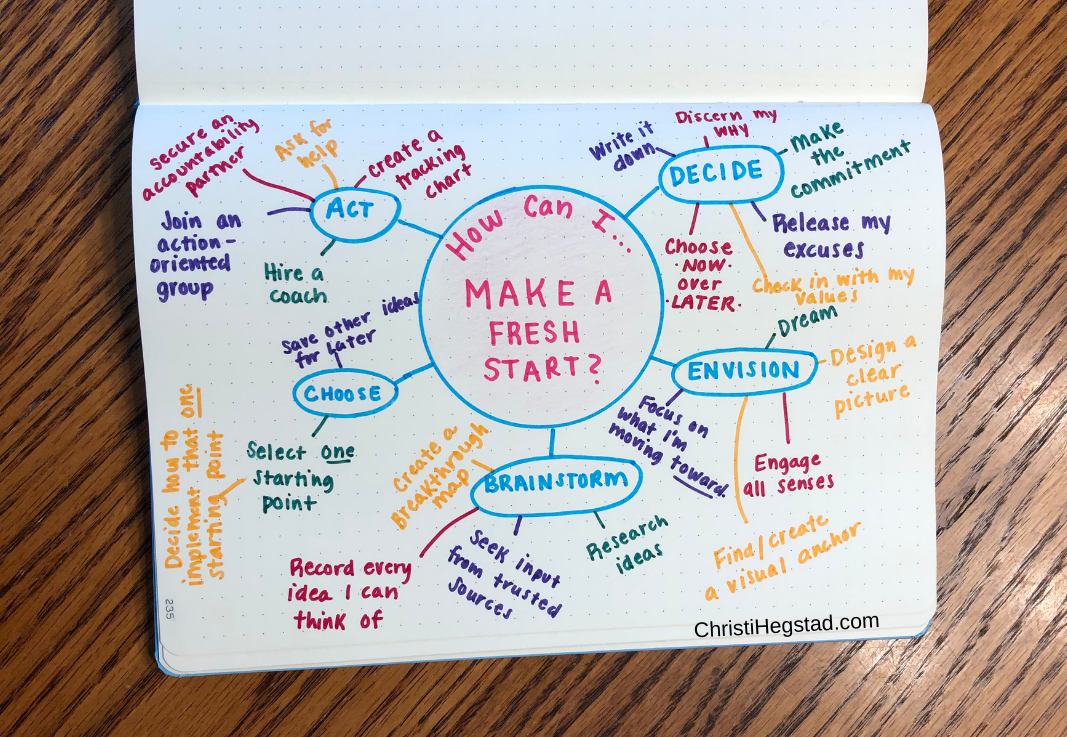 How Can I...
MAKE A
FRESH
START?
Discern my
WHY
Write it
down
DECIDE
Make
the
commitment
Release my
excuses
Check in with my
values
Choose
·NOW·
over
·LATER·
Dream
ENVISION
Design a
clear
picture
Engage
all senses
Find/create
a visual anchor
Focus on
what I'm
moving toward.
BRAINSTORM
Research
ideas
Seek input
from trusted
sources
Record every
idea I can
think of
Create a
Breakthrough
map
CHOOSE
Save other ideas
for later
Select one
starting
point
Decide how to
implement that one
starting point
ACT
Hire a
coach
Join an
action-
oriented
group
secure an
accountability
partner
Ask for
help
create a
tracking
chart
235
ChristiHegstad.com